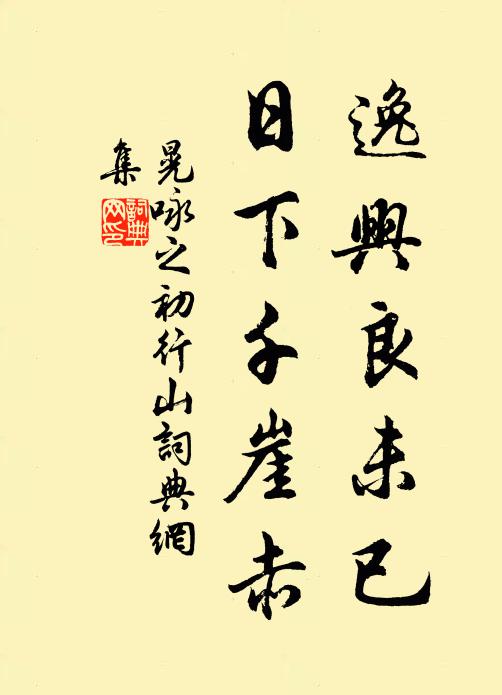 逸興良未已
日下千崖赤
晁咏之初行山詞典網
集
詞典網印